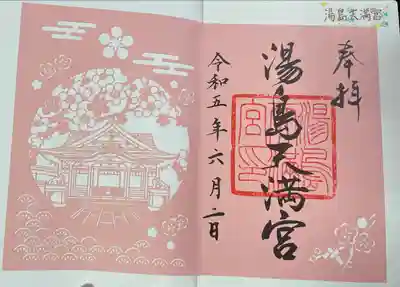 湯島天満宮
奉拝
湯島天満宮
令和五年六月二日
湯島天満宮之印